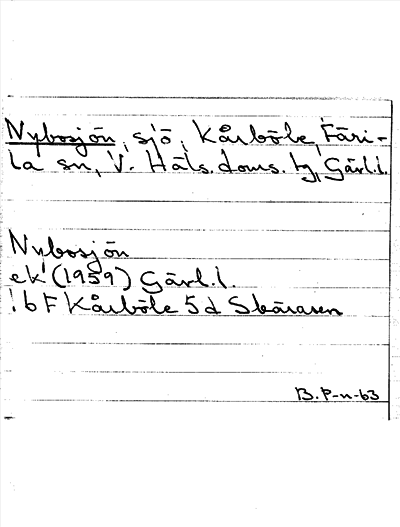 Nybosjön, sjö, Kårböle, Färi-
la sn, V. Häls. doms. tg, Gävl.l.
Nybosjön
ek (1959) Gävl.l.
16 F Kårböle 5d Skåråsen
B. P-n-63